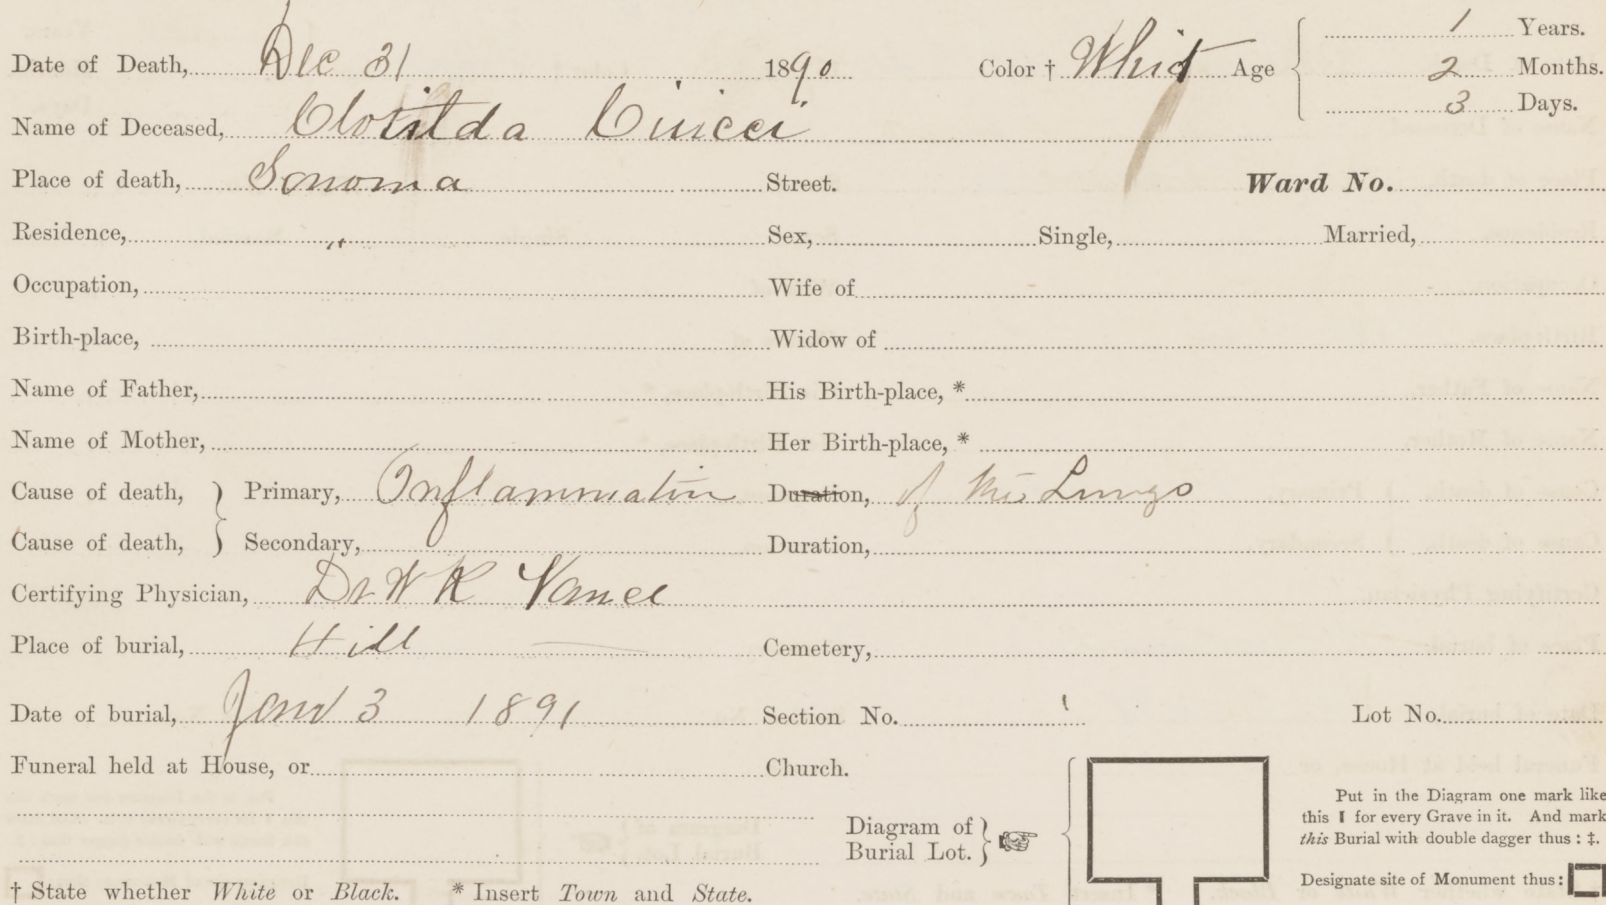 Date of Death, Dec 31 1890 Color † Whit Age 1 Years.
2 Months.
3 Days.
Name of Deceased, Clotilda
Place of death, Sonoma Street. Ward No.
Residence, " Sex, Single, Married,
Occupation, Wife of
Birth-place, Widow of
Name of Father, His Birth-place, *
Name of Mother, Her Birth-place, *
Cause of death, } Primary, Inflammation Duration, of the Lungs
Cause of death, } Secondary, Duration,
Certifying Physician, Dr W K Vance
Place of burial, Hill Cemetery,
Date of burial, Jany 3 1891 Section No. Lot No.
Funeral held at House, or Church.
Diagram of
Burial Lot. }
Put in the Diagram one mark like
this ▮ for every Grave in it. And mark
this Burial with double dagger thus : ‡.
Designate site of Monument thus :
† State whether White or Black. * Insert Town and State.